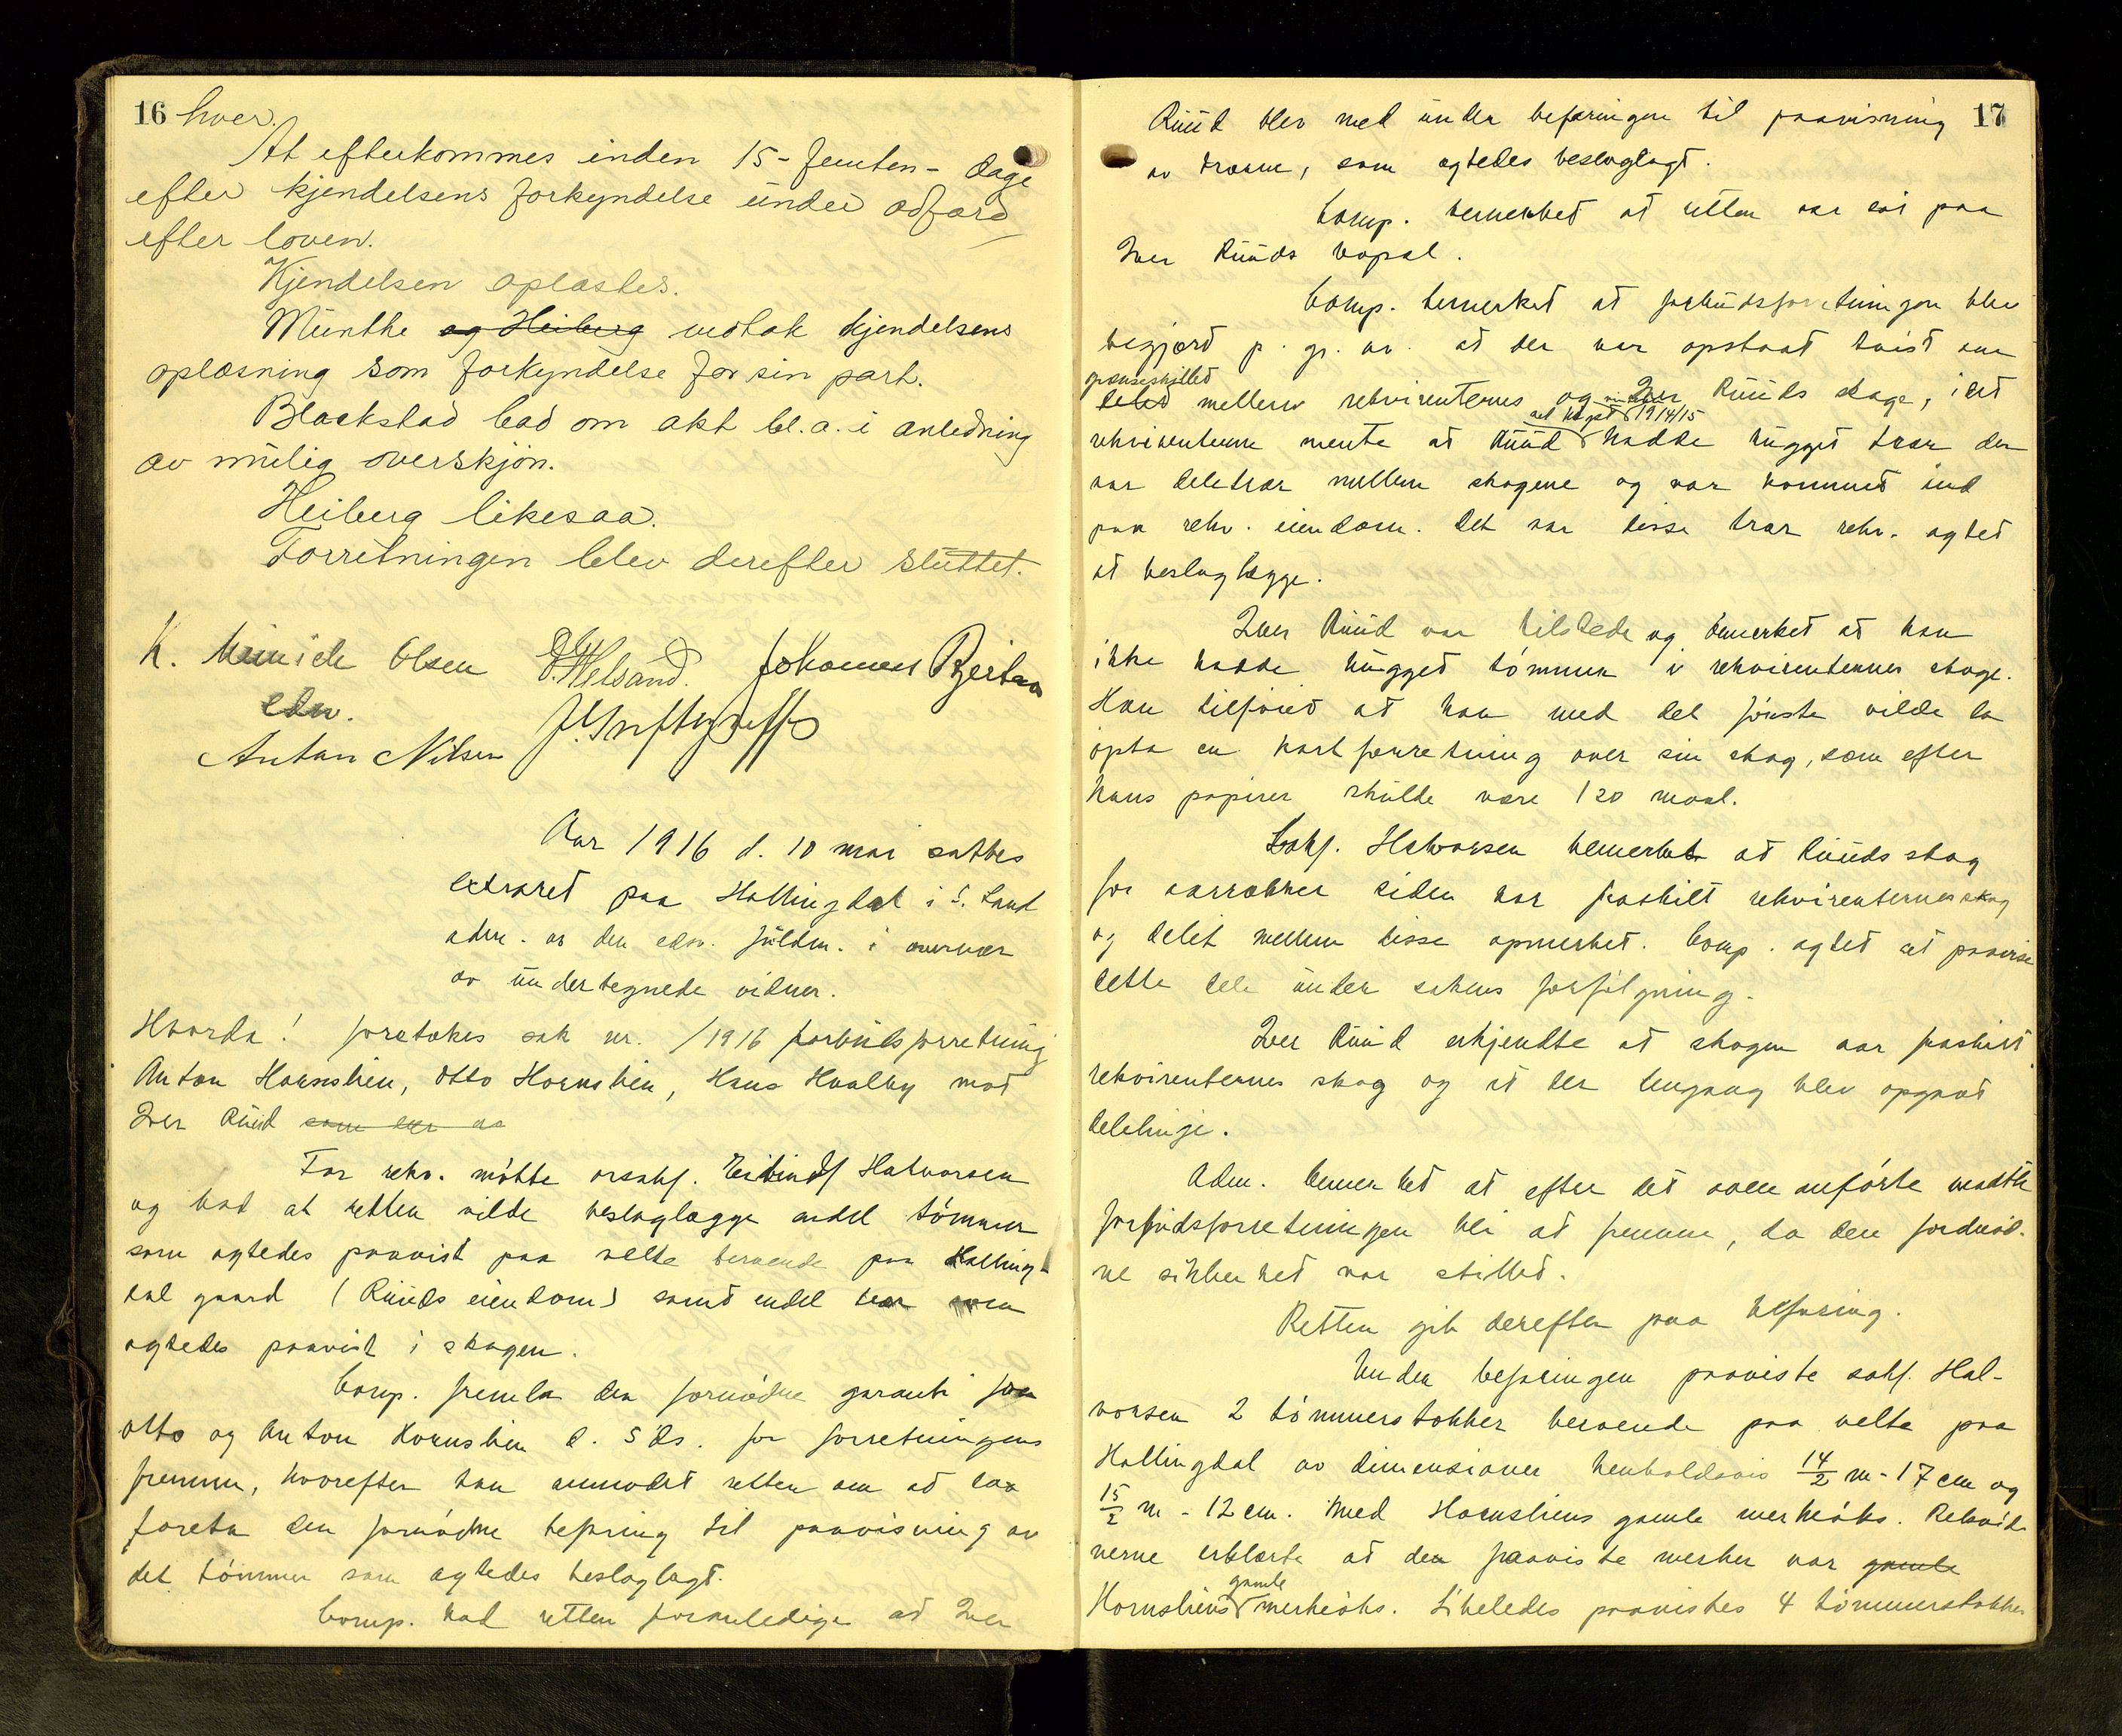 16 hver.
At efterkommes inden 15 - femten - dage
efter kjendelsens forkyndelse under adfærd
efter loven.
Kjendelsen oplæstes.
Munthe og Heiberg vedtok kjendelsens
oplæsning som forkyndelse for sin part.
Blackstad bad om akt bl.a. i anledning
av mulig overskjøn.
Heiberg likesaa.
Forretningen blev derefter sluttet.
K. Olsen Johannes
edsv.
Anton Nilsen
Aar 1916 d. 10 mai sattes
extraret paa Hallingdal i S. Land
adm. av den edsv. fuldm. i overvær
av undertegnede vidner.
Hvorda! foretokes sak nr. /1916 forbudsforretning
Anton Hornslien, Otto Hornslien, Hans Hvalby mot
Iver Ruud som er av
For rekv. møtte orsakf. Eivind Halvorsen
og bad at retten vilde beslaglægge endel tømmer
som agtedes paavist paa velte beroende paa Halling-
dal gaard (Ruuds eiendom) samt endel trær som
agtedes paavist i skogen.
Comp. fremla den fornødne garanti fra
Otto og Anton Hornslien d. 5 ds. for forretningens
fremme, hvorefter han anmodet retten om at la
foreta den fornødne befaring til paavisning av
det tømmer som agtedes beslaglagt.
Comp. bad retten foranledige at Iver
17
Ruud blev med under befaringen til paavisning
av trærne, som agtedes beslaglagt.
Comp. bemerket at retten var sat paa
Iver Ruuds bopæl.
Comp. bemerket at forbudsforretningen blev
begjært p. gr. av. at der var opstaat tvist om
grænseskillet
delet mellem rekvirenternes og Iver Ruuds skoge, idet
1914/15
rekvirenterne mente at Ruud hadde hugget trær der
var deletrær mellem skogene og var kommet ind
paa rekv. eiendom. Det var disse trær rekv. agtet
at beslaglægge.
Iver Ruud var tilstede og bemerket at han
ikke hadde hugget tømmer i rekvirenternes skoge.
Han tilføiet at han med det første vilde la
opta en kartforretning over sin skog, som efter
hans papirer skulde være 120 maal.
Sakf. Halvorsen bemerket at Ruuds skog
for aarrækker siden var fraskilt rekvirenternes skog
og delet mellem disse opmerket. Comp. agtet at paavise
dette dele under sakens forfølgning.
Iver Ruud erkjendte at skogen var fraskilt
rekvirenternes skog og at der dengang blev opgaat
delelinje.
Adm. bemerket at efter det oven anførte maatte
forbudsforretningen bli at fremme, da den fornød-
ne sikkerhet var stillet.
Retten gik derefter paa befaring.
Under befaringen paaviste sakf. Hal-
vorsen 2 tømmerstokker beroende paa velte paa
Hallingdal av dimensioner henholdsvis 14/2 m - 17 cm og
15/2 m - 12 cm. med Hornsliens gamle merkeøks. Rekvi-
nerne erklærte at den paaviste merker var gamle
gamle
Hornsliens merkeøks. Likeledes paavistes 4 tømmerstokker